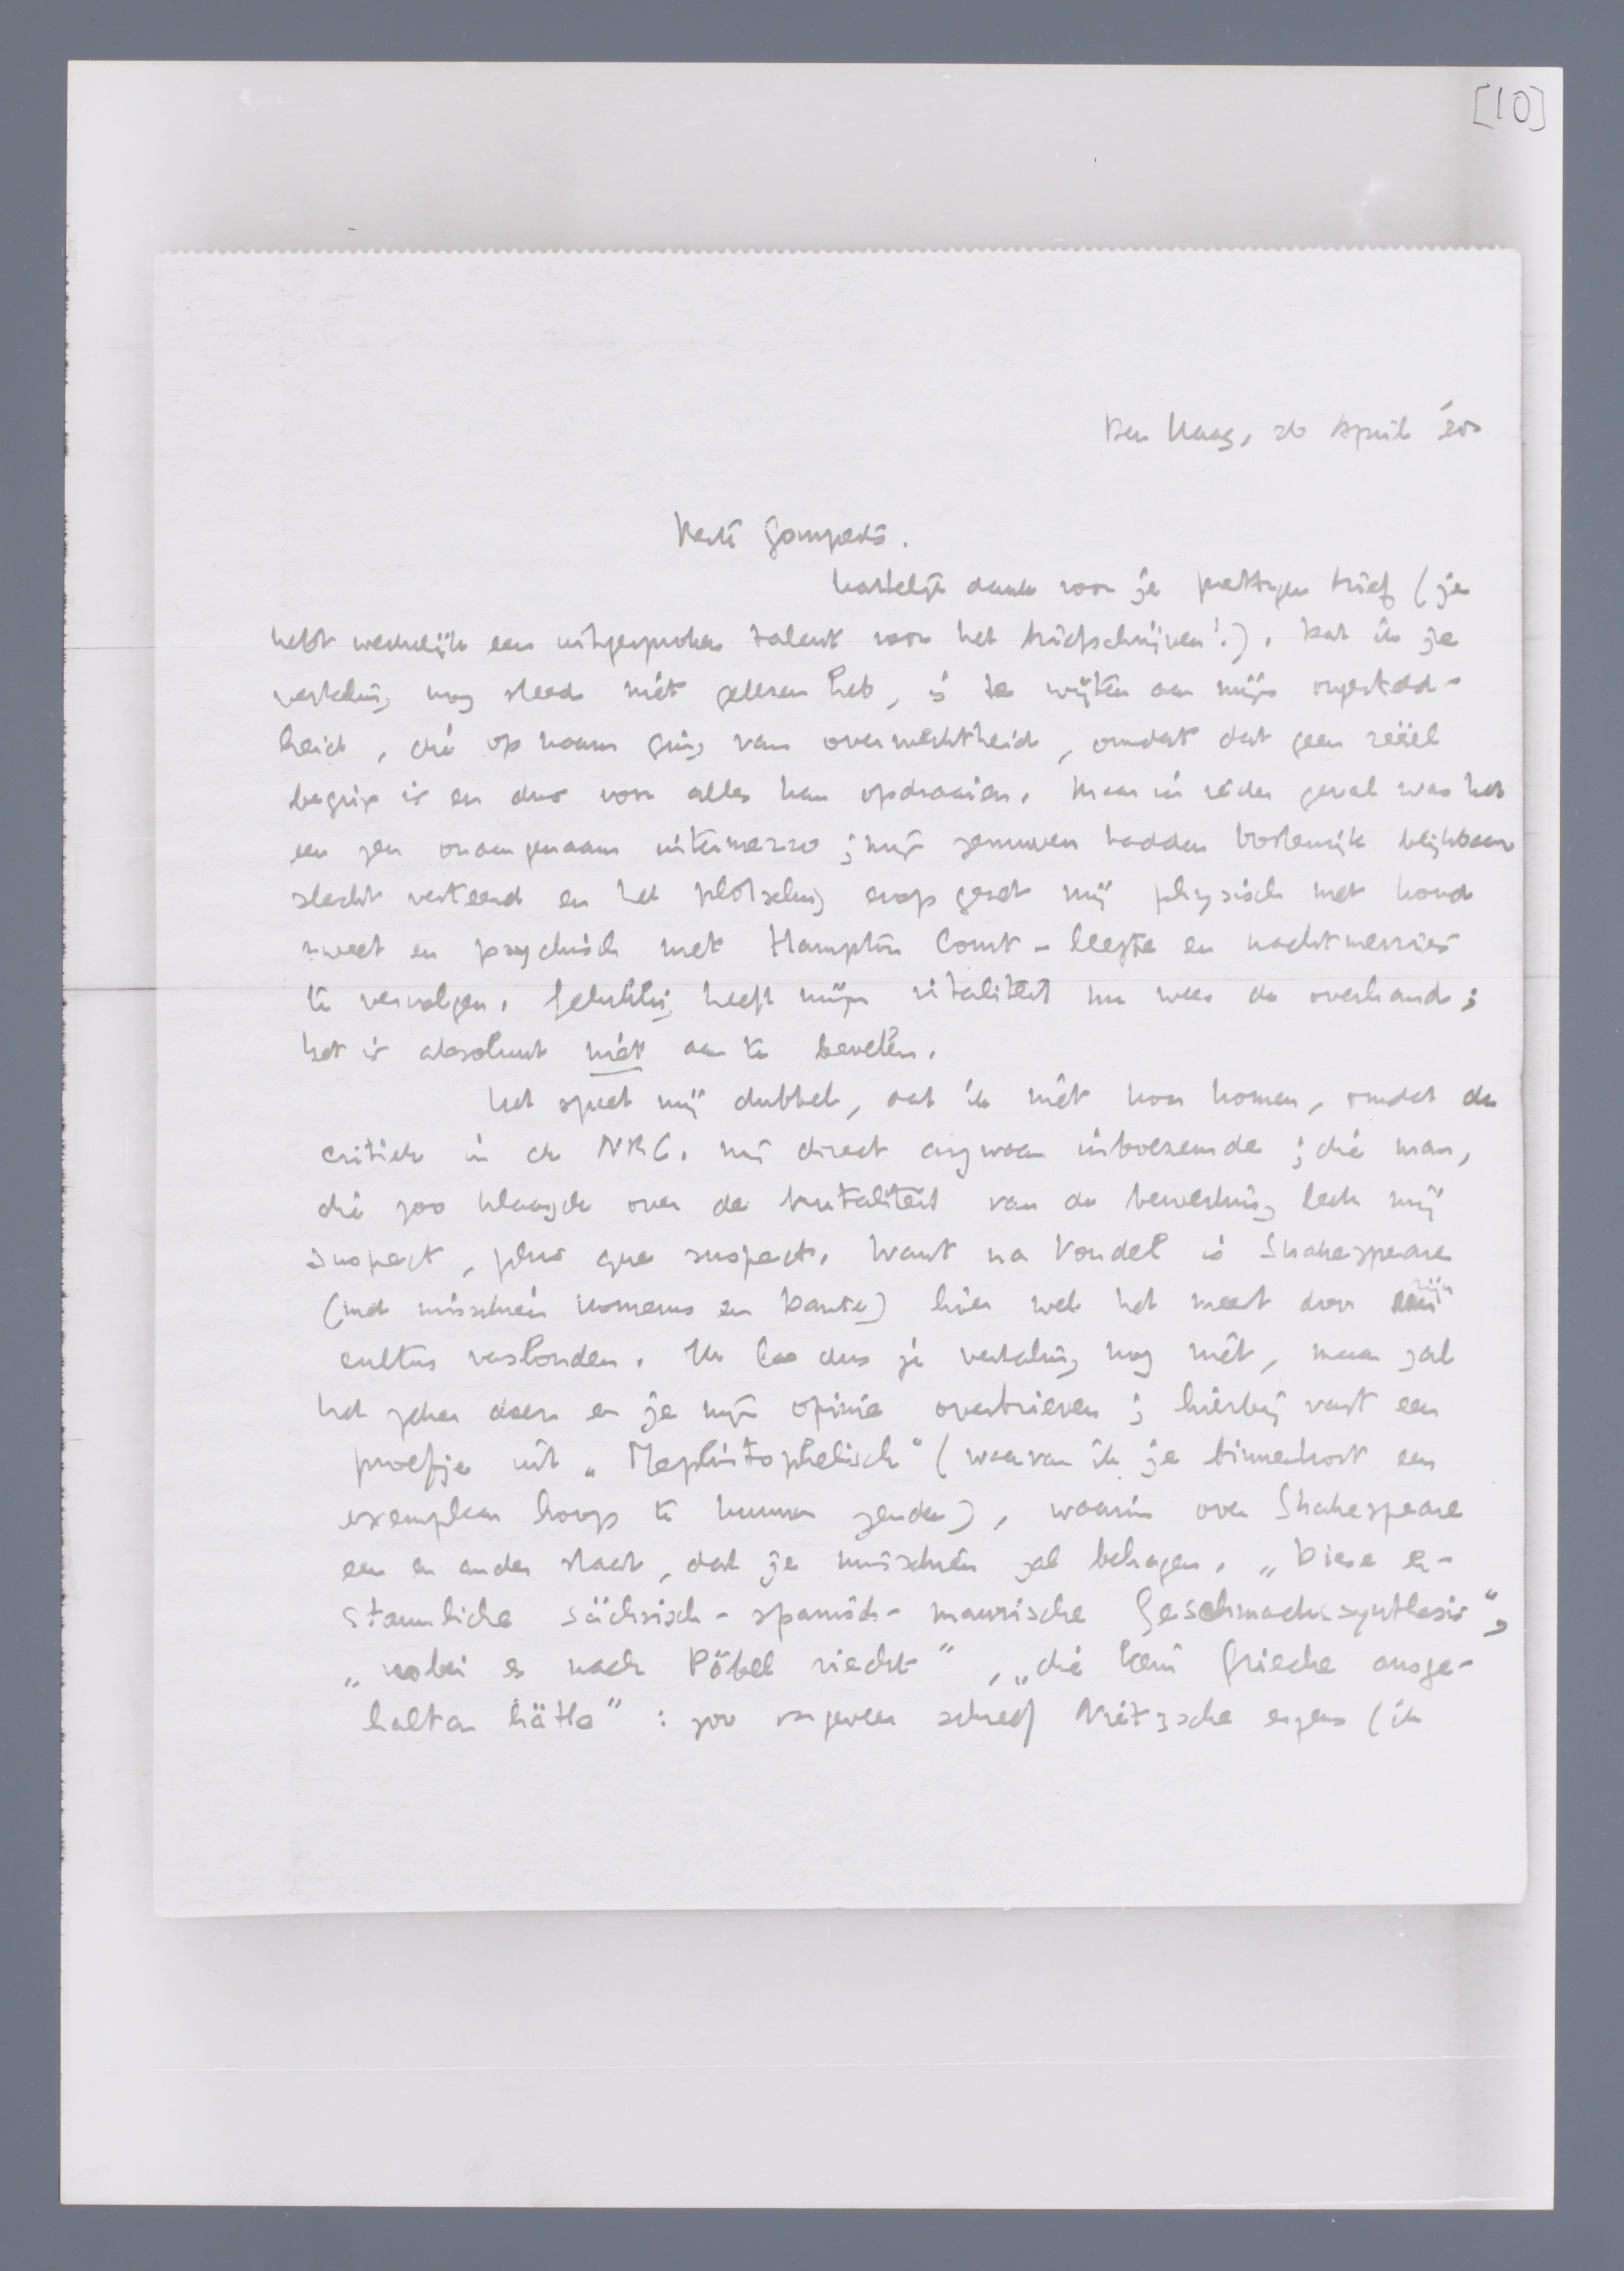 [10]
Den Haag, 26 April
Beste Gomperts.
hartelijk dank voor je prettigen brief (je
hebt werkelijk een uitgesproken talent voor het briefschrijven!). Dat ik je
vertaling nog steeds niet gelezen heb, is te wijten aan mijn ongesteld-
heid, die op naam ging van overwerktheid, omdat dat geen reëel
begrip is en dus voor alles kan opdraaien. Maar in ieder geval was het
een zeer onaangenaam intermezzo; mijn zenuwen hadden bovendien blijkbaar
slecht verteerd en het plotseling erop gezet mij physisch met koud
zweet en psychisch met Hampton Court-leegte en nachtmerries
te vervolgen. Gelukkig heeft mijn vitaliteit nu weer de overhand;
het is absoluut niet aan te bevelen.
Het speet mij dubbel, dat ik niet kon komen, omdat de
critiek in de NRC. mij direct argwaan inboezemde; die man,
die zoo klaagde over de brutaliteit van de bewerking leek mij
suspect, plus que suspect. Want na Vondel is Shakespeare
(met misschien Homerus en Dante) hier wel het meest door zijn
cultus verslonden. Ik las dus je vertaling nog niet, maar zal
het zeker doen en je mijn opinie overbrieven; hierbij vast een
proefje uit „Mephistophelisch" (waarvan ik je binnenkort een
exemplaar hoop te kunnen zenden), waarin over Shakespeare
een en ander staat, dat je misschien zal behagen. „Diese er-
staunliche sächsisch-spanisch-maurische Geschmackssynthesis",
„wobei es nach Pöbel riecht", „die kein Grieche ausge-
halten hätte": zoo ongeveer schreef Nietzsche ergens (ik